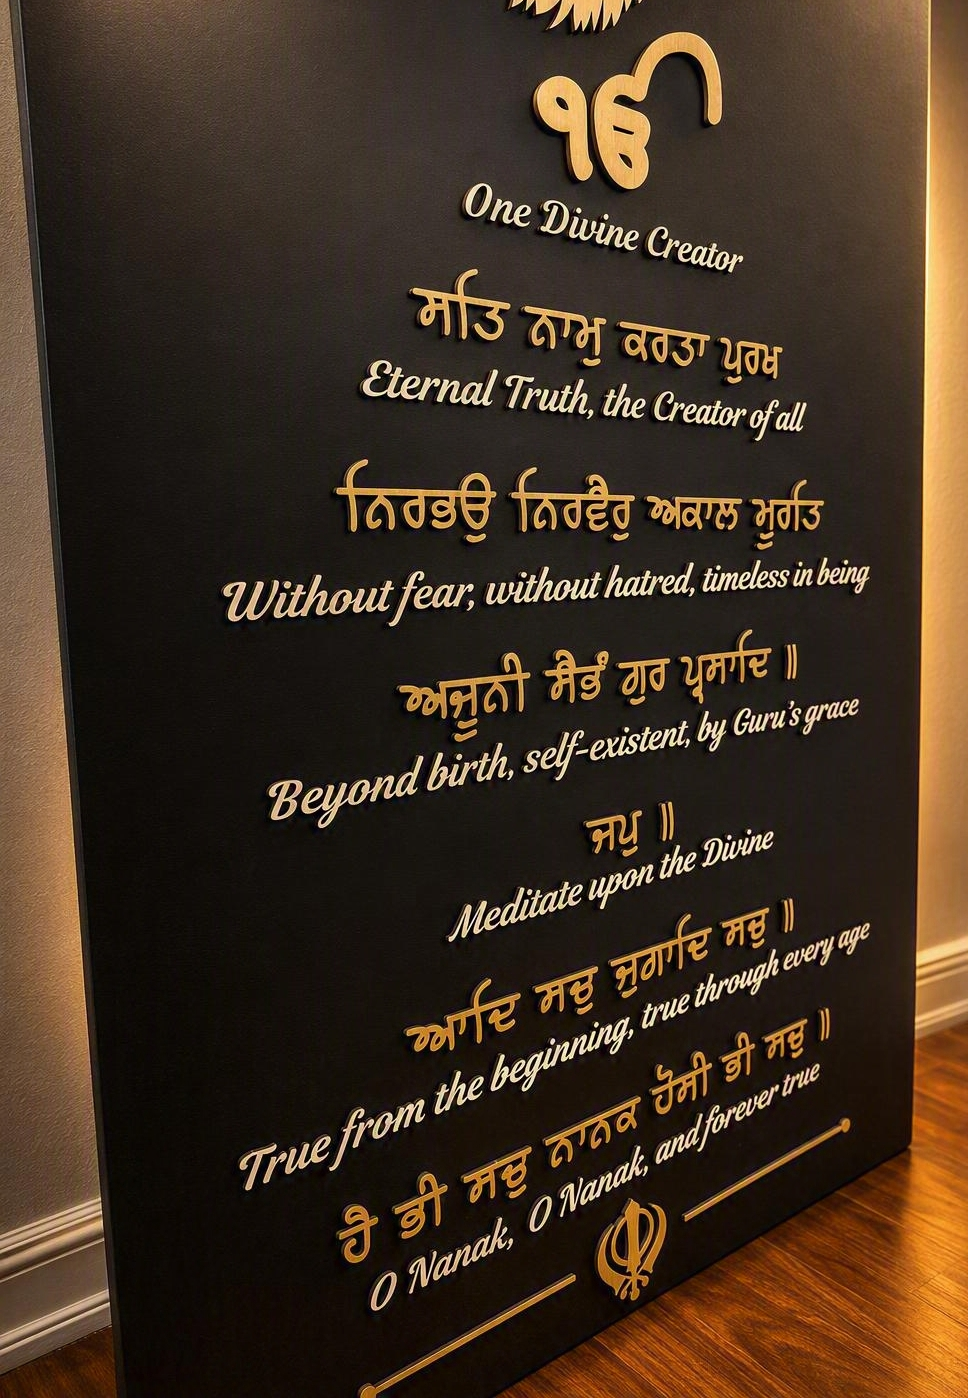 ੴ
One Divine Creator
ਸਤਿ ਨਾਮੁ ਕਰਤਾ ਪੁਰਖ
Eternal Truth, the Creator of all
ਨਿਰਭਉ ਨਿਰਵੈਰੁ ਅਕਾਲ ਮੂਰਤਿ
Without fear, without hatred, timeless in being
ਅਜੂਨੀ ਸੈਭੰ ਗੁਰ ਪ੍ਰਸਾਦਿ ॥
Beyond birth, self-existent, by Guru's grace
ਜਪੁ ॥
Meditate upon the Divine
ਆਦਿ ਸਚੁ ਜੁਗਾਦਿ ਸਚੁ ॥
True from the beginning, true through every age
ਹੈ ਭੀ ਸਚੁ ਨਾਨਕ ਹੋਸੀ ਭੀ ਸਚੁ ॥
O Nanak, O Nanak, and forever true